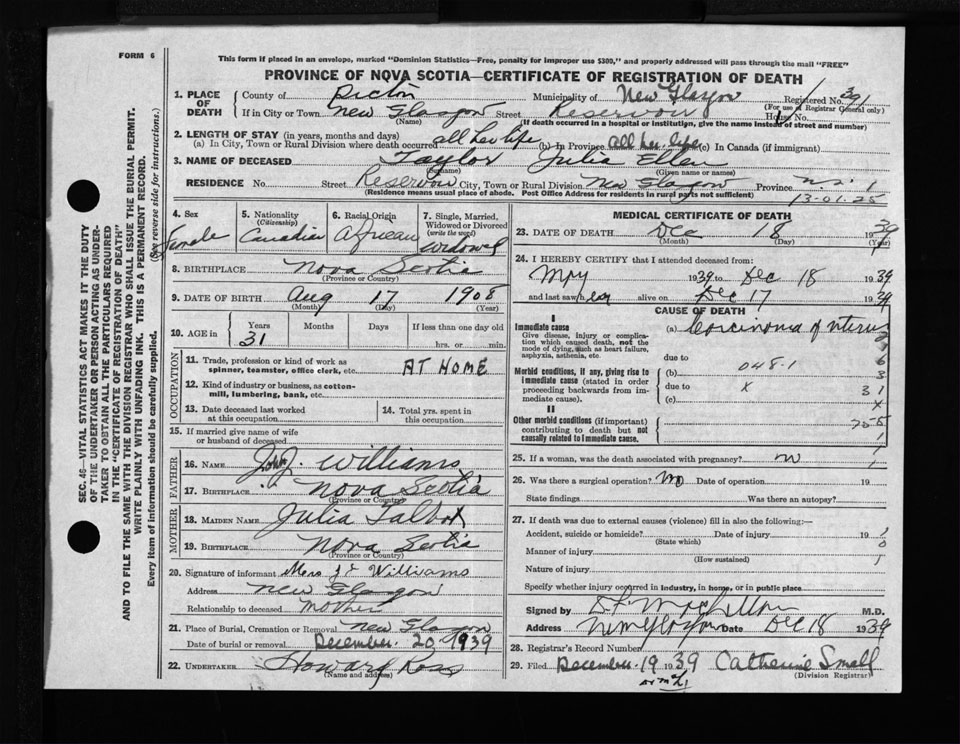 FORM 6
This form if placed in an envelope, marked "Dominion Statistics—Free, penalty for improper use $300," and properly addressed will pass through the mail "FREE"
PROVINCE OF NOVA SCOTIA—CERTIFICATE OF REGISTRATION OF DEATH
1. PLACE OF DEATH
County of Pictou Municipality of New Glasgow Registered No. 391
(For use of Registrar General only)
If in City or Town New Glasgow Street Reservoir House No.
(Name) (If death occurred in a hospital or institution, give the name instead of street and number)
2. LENGTH OF STAY (in years, months and days)
(a) In City, Town or Rural Division where death occurred all her life (b) In Province all her life (c) In Canada (if immigrant)
3. NAME OF DECEASED Taylor Julia Ellen
(Surname) (Given name or names)
RESIDENCE No. Street Reservoir City, Town or Rural Division New Glasgow Province N.S. 1
(Residence means usual place of abode. Post Office Address for residents in rural parts not sufficient)
13-01-25
4. Sex Female
5. Nationality (Citizenship) Canadian
6. Racial Origin African
7. Single, Married, Widowed or Divorced (write the word) widowed
8. BIRTHPLACE Nova Scotia
(Province or Country)
9. DATE OF BIRTH Aug 17 1908
(Month) (Day) (Year)
10. AGE in Years Months Days If less than one day old
31 hrs. or min.
OCCUPATION
11. Trade, profession or kind of work as spinner, teamster, office clerk, etc. AT HOME
12. Kind of industry or business, as cotton-mill, lumbering, bank, etc.
13. Date deceased last worked at this occupation
14. Total yrs. spent in this occupation
15. If married give name of wife or husband of deceased
FATHER
16. NAME John J. Williams
17. BIRTHPLACE Nova Scotia
(Province or Country)
MOTHER
18. MAIDEN NAME Julia Talbot
19. BIRTHPLACE Nova Scotia
(Province or Country)
20. Signature of informant Mrs J Williams
Address New Glasgow
Relationship to deceased mother
21. Place of Burial, Cremation or Removal New Glasgow
Date of burial or removal December 20 1939
22. UNDERTAKER Howard Ross
(Name and address)
MEDICAL CERTIFICATE OF DEATH
23. DATE OF DEATH Dec 18 1939
(Month) (Day) (Year)
24. I HEREBY CERTIFY that I attended deceased from:
May 1939 to Dec 18 1939
and last saw her alive on Dec 17 1939
CAUSE OF DEATH
I
Immediate cause
Give disease, injury or complication which caused death, not the mode of dying, such as heart failure, asphyxia, asthenia, etc.
(a) Carcinoma of uterus
due to
Morbid conditions, if any, giving rise to immediate cause (stated in order proceeding backwards from immediate cause).
(b) 048.1
due to x
(c)
31
x
II
Other morbid conditions (if important) contributing to death but not causally related to immediate cause.
25. If a woman, was the death associated with pregnancy? no
26. Was there a surgical operation? No Date of operation 19
State findings Was there an autopsy?
27. If death was due to external causes (violence) fill in also the following:—
Accident, suicide or homicide? Date of injury 19
(State which)
Manner of injury
(How sustained)
Nature of injury
Specify whether injury occurred in industry, in home, or in public place
Signed by M.D.
Address New Glasgow Date Dec 18 1939
28. Registrar's Record Number
29. Filed December 19 1939 Catherine Small
(Division Registrar)
SEC. 46—VITAL STATISTICS ACT MAKES IT THE DUTY OF THE UNDERTAKER OR PERSON ACTING AS UNDERTAKER TO OBTAIN ALL THE PARTICULARS REQUIRED IN THE "CERTIFICATE OF REGISTRATION OF DEATH" AND TO FILE THE SAME WITH THE DIVISION REGISTRAR WHO SHALL ISSUE THE BURIAL PERMIT.
WRITE PLAINLY WITH UNFADING INK. THIS IS A PERMANENT RECORD.
Every item of information should be carefully supplied. (See reverse side for instructions.)